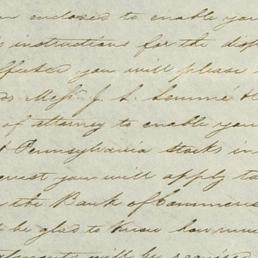 enclosed to enable you
instructions for the disp
effected you will please
Messrs J. L.
of attorney to enable you
Pennsylvania stocks in
quest you will apply to
the Bank of Commerce
be glad to know how mu
will be required